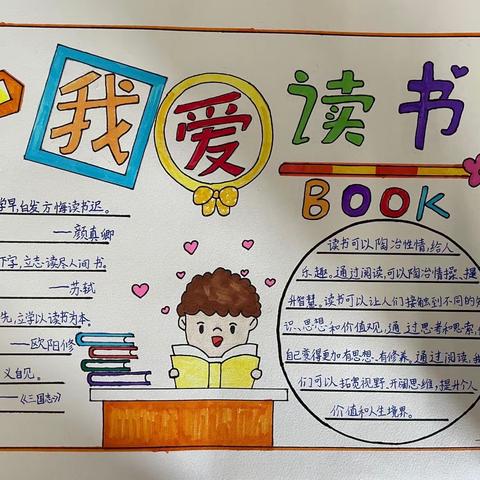 我爱读书
BOOK
学早,白发方悔读书迟。
——颜真卿
下字,立志读尽人间书。
——苏轼
先,立学以读书为本。
——欧阳修
义自见。
——《三国志》
读书可以陶冶性情,给人
乐趣。通过阅读,可以陶冶情操、提
升智慧。读书可以让人们接触到不同的知
识、思想和价值观,通过思考和思索,使
自己变得更加有思想、有修养。通过阅读,我
们可以拓宽视野、开阔思维,提升个人
价值和人生境界。